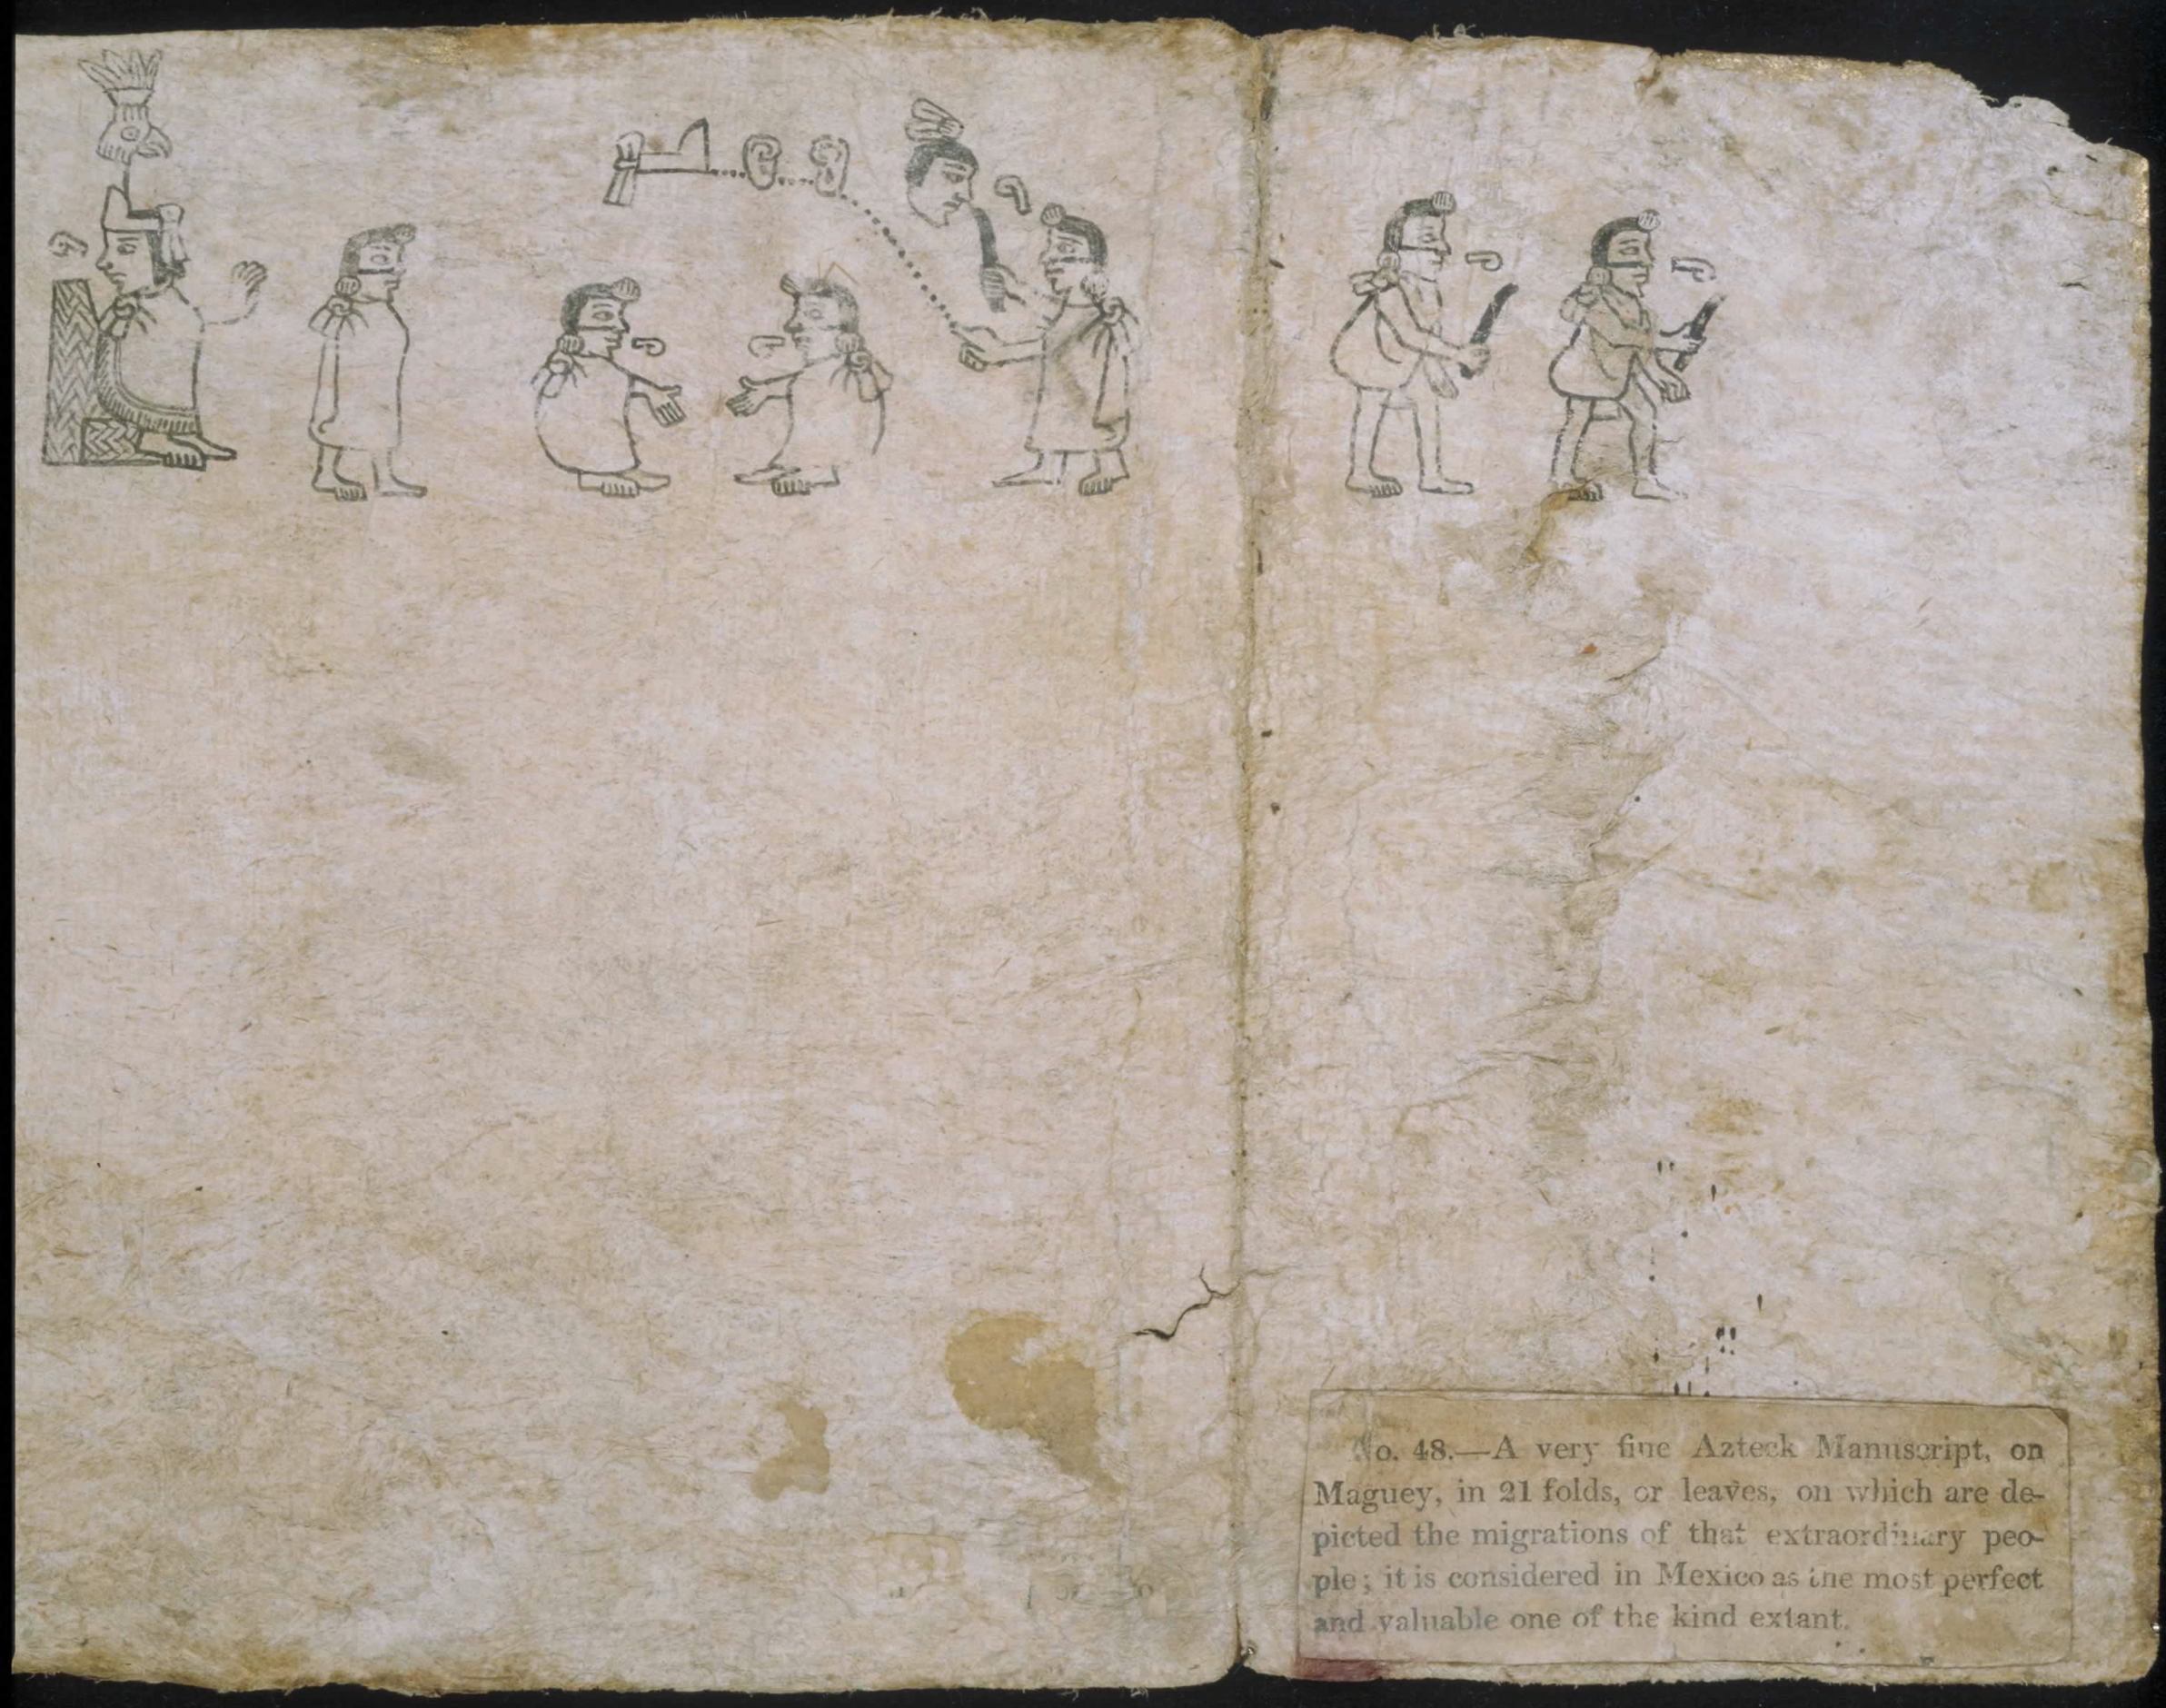 No. 48.—A very fine Azteck Manuscript, on
Maguey, in 21 folds, or leaves, on which are de-
picted the migrations of that extraordinary peo-
ple; it is considered in Mexico as the most perfect
and valuable one of the kind extant.